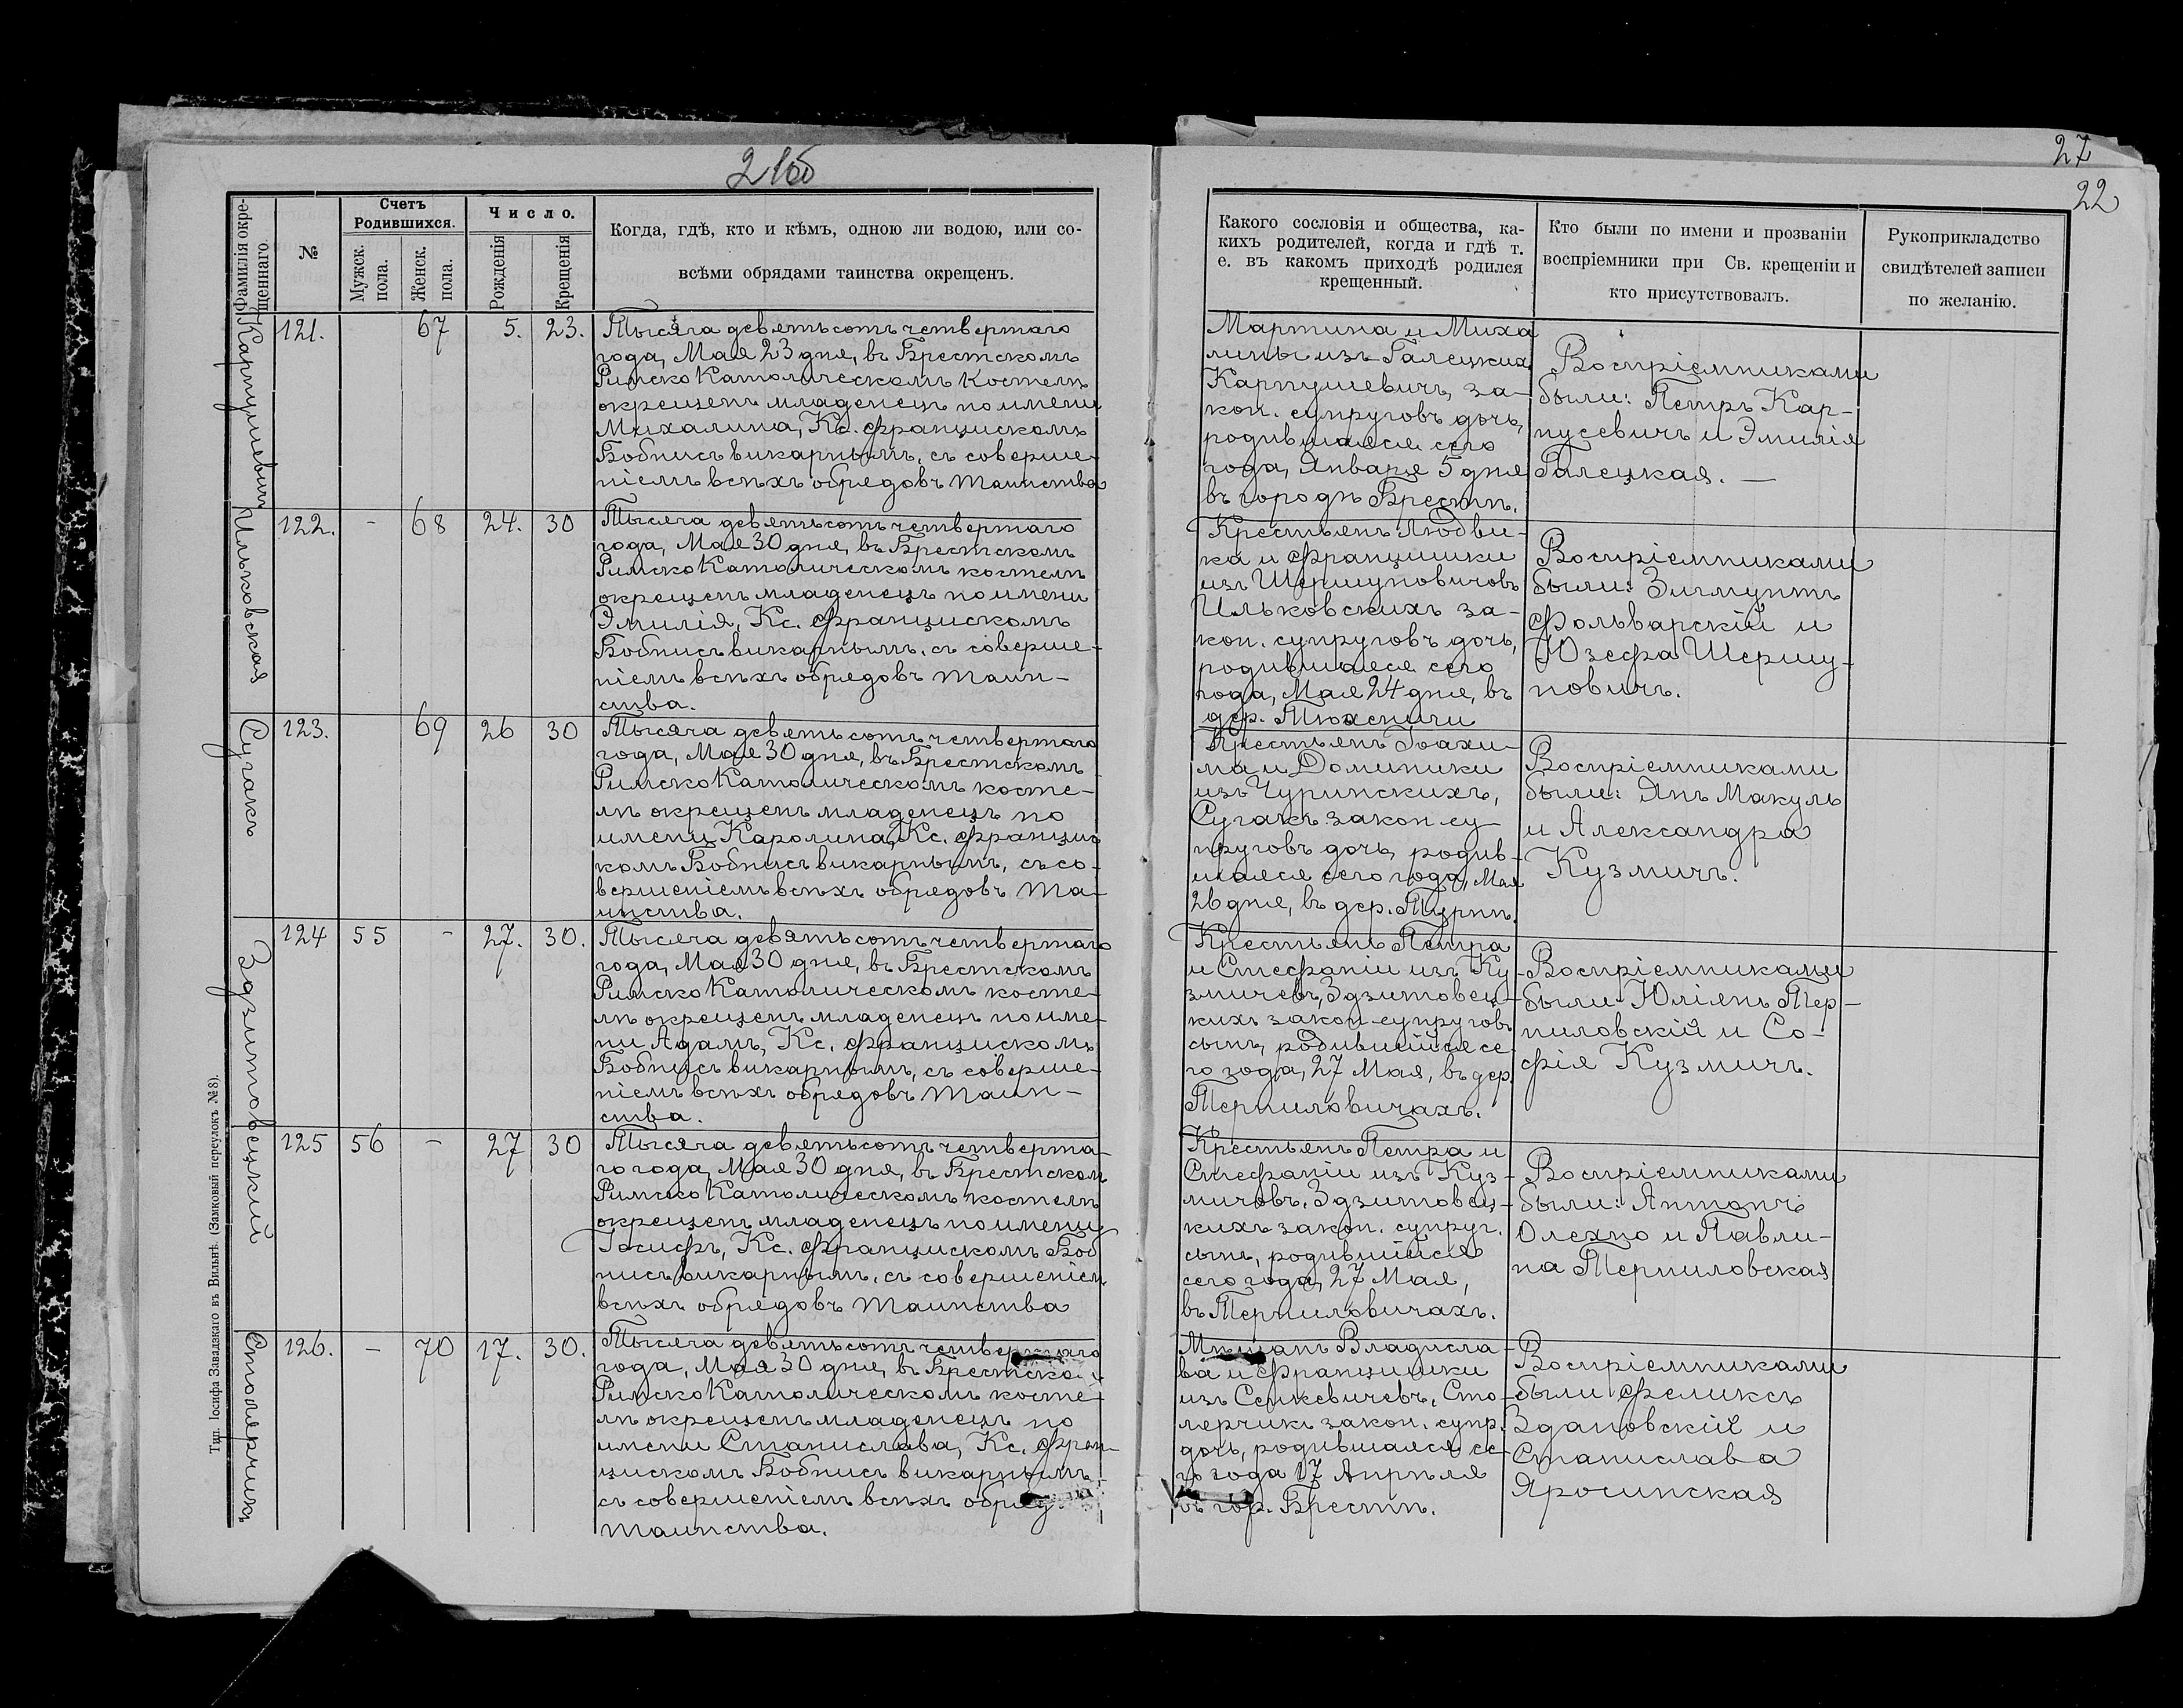 27
22
Фамилія окре-
щеннаго.
№
Счетъ
Родившихся.
Мужск.
пола.
Женск.
пола.
Число.
Рожденія
Крещенія
Когда, гдѣ, кто и кѣмъ, одною ли водою, или со-
всѣми обрядами таинства окрещенъ.
Какого сословія и общества, ка-
кихъ родителей, когда и гдѣ т.
е. въ какомъ приходѣ родился
крещенный.
Кто были по имени и прозванiи
воспріемники при Св. крещеніи и
кто присутствовалъ.
Рукоприкладство
свидѣтелей записи
по желанію.
Карпушевичъ
121.
67
5.
23.
Тысяча девятьсотъ четвертаго
года, Мая 23 дня, въ Брестскомъ
Римско Католическомъ Костелѣ
окрещенъ младенецъ по имени
Михалина, Кс. Францискомъ
Бобнисъ викарнымъ, съ соверше-
ніемъ всѣхъ обрядовъ таинства
Мартина и Миха
лины изъ Галецкихъ
Карпушевичъ, за-
кон. супруговъ дочь,
родившаяся сего
года, Января 5 дня
въ городѣ Брестѣ.
Воспріемниками
были: Петръ Кар-
пусевичъ и Эмилія
Галецкая. —
Ильковская
122.
-
68
24.
30
Тысяча девятьсотъ четвертаго
года, Мая 30 дня, въ Брестскомъ
Римско Католическомъ костелѣ
окрещенъ младенецъ по имени
Эмилія, Кс. Францискомъ
Бобнисъ викарнымъ, съ соверше-
ніемъ всѣхъ обрядовъ таин-
ства.
Крестьянъ Людви-
ка и Францишки
изъ Шершуновичовъ
Ильковскихъ за-
кон. супруговъ дочь,
родившаяся сего
года, Мая 24 дня, въ
дер. Тюхеничи
Воспріемниками
были: Зигмунтъ
Фольварскій и
Юзефа Шершу-
новичъ.
Сугакъ
123.
69
26
30
Тысяча девятьсотъ четвертаго
года, Мая 30 дня, въ Брестскомъ
Римско Католическомъ косте-
лѣ окрещенъ младенецъ по
имени Каролина, Кс. Францис
комъ Бобнисъ викарнымъ, съ со-
вершеніемъ всѣхъ обрядовъ та-
инства.
Крестьянъ Іоахи-
ма и Доминики
изъ Чуринскихъ,
Сугакъ закон су-
пруговъ дочь, родив-
шаяся сего года, Мая
26 дня, въ дер. Турнѣ.
Воспріемниками
были: Янъ Макуль
и Александра
Кузмичъ.
Здзитовецкий
124
55
-
27.
30.
Тысяча девятьсотъ четвертаго
года, Мая 30 дня, въ Брестскомъ
Римско Католическомъ косте-
лѣ окрещенъ младенецъ по име-
ни Адамъ, Кс. Францискомъ
Бобнисъ викарнымъ, съ соверше-
ніемъ всѣхъ обрядовъ таин-
ства.
Крестьянъ Петра
и Стефаніи изъ Ку-
змичевъ, Здзитовец-
кихъ закон супруговъ
сынъ, родившійся се-
го года, 27 Мая, въ дер.
Терпиловичахъ.
Воспріемниками
были Юліянъ Тер-
пиловскій и Со-
фія Кузмичъ.
125
56
-
27
30
Тысяча девятьсотъ четверта-
го года, Мая 30 дня, въ Брестскомъ
Римско Католическомъ костелѣ
окрещенъ младенецъ по имени
Іосифъ, Кс. Францискомъ Боб
нисъ викарнымъ, съ совершеніем
всѣхъ обрядовъ таинства
Крестьянъ Петра и
Стефаніи изъ Куз-
мичовъ. Здзитовец-
кихъ закон. супруг.
сынъ, родившійся
сего года, 27 Мая,
въ Терпиловичахъ.
Воспріемниками
были: Антонъ
Олехно и Павли-
на Терпиловская
Столярчикъ
126.
-
70
17.
30.
Тысяча девятьсотъ четвертаго
года, Мая 30 дня, въ Брестском
Римско Католическомъ косте-
лѣ окрещенъ младенецъ по
имени Станислава, Кс. Фран-
цискомъ Бобнисъ викарнымъ
съ совершеніемъ всѣхъ обряд
таинства.
Мѣщанъ Владисла-
ва и Францишки
изъ Сенкевичевъ, Сто-
лярчикъ закон. супр.
дочь, родившаяся се-
го года 17 Апрѣля
въ гор. Брестѣ.
Воспріемниками
были Феликсъ
Здановскій и
Станислава
Яросинская
Тип. Іосифа Завадзкаго въ Вильнѣ. (Замковый переулокъ № 8).